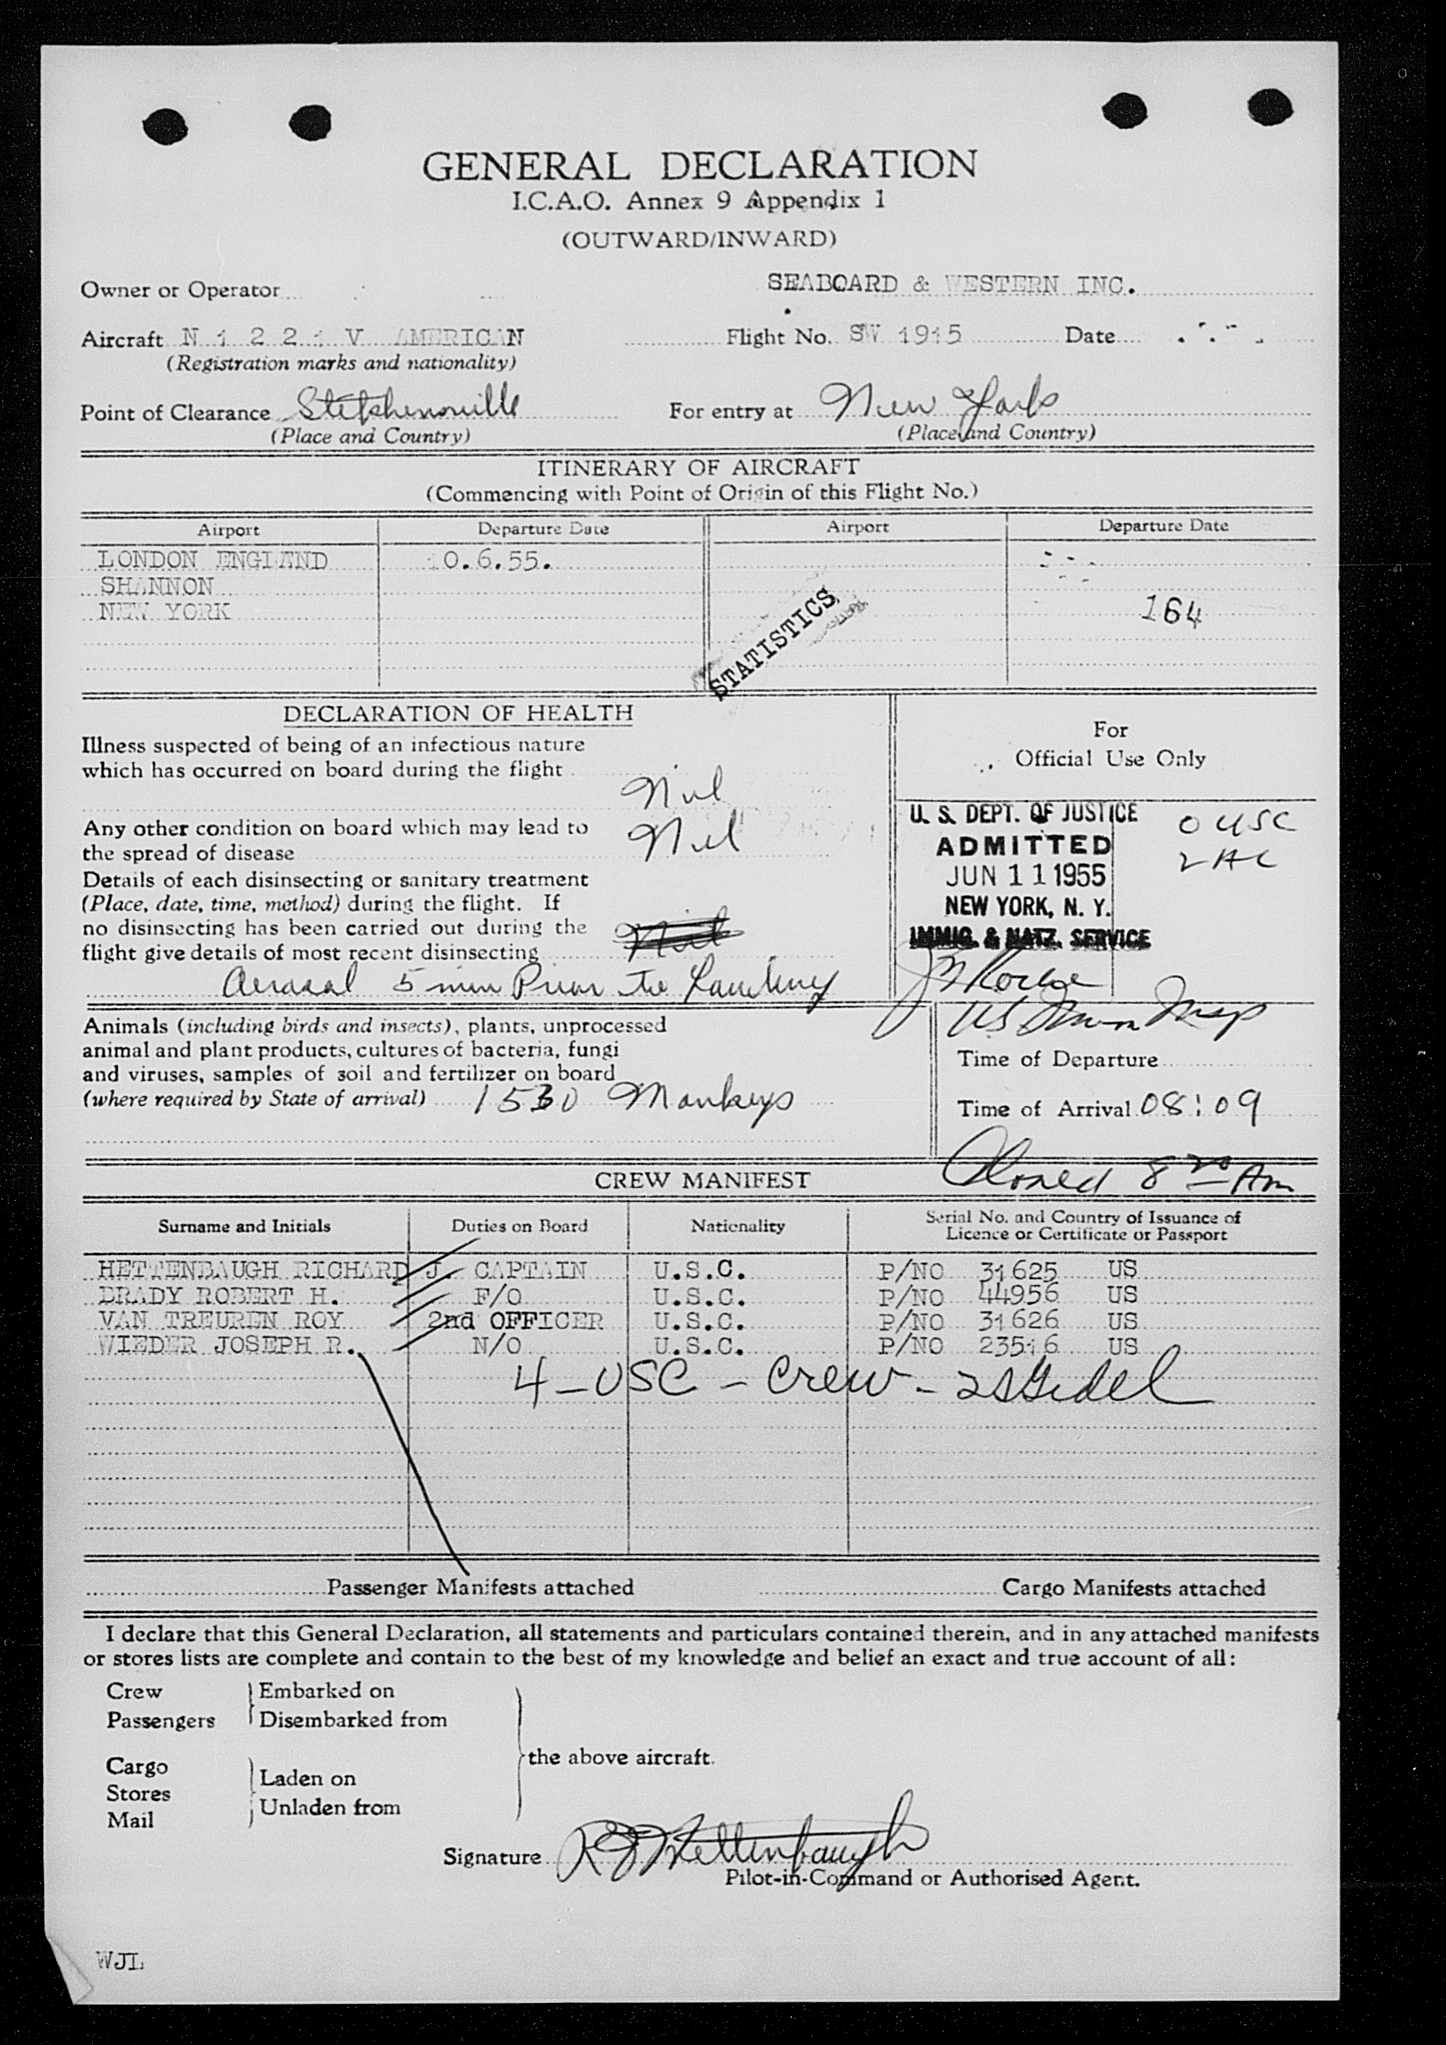 GENERAL DECLARATION
I.C.A.O. Annex 9 Appendix 1
(OUTWARD/INWARD)
Owner or Operator SEABOARD & WESTERN INC.
Aircraft N 1 2 2 1 V AMERICAN Flight No. SW 1915 Date
(Registration marks and nationality)
Point of Clearance Stephenville For entry at New York
(Place and Country) (Place and Country)
ITINERARY OF AIRCRAFT
(Commencing with Point of Origin of this Flight No.)
Airport Departure Date Airport Departure Date
LONDON ENGLAND 10.6.55.
SHANNON
NEW YORK 164
STATISTICS
DECLARATION OF HEALTH
Illness suspected of being of an infectious nature
which has occurred on board during the flight Nil
Any other condition on board which may lead to
the spread of disease Nil
Details of each disinsecting or sanitary treatment
(Place, date, time, method) during the flight. If
no disinsecting has been carried out during the
flight give details of most recent disinsecting Nil
Aerosol 5 min Prior to Landing
For
Official Use Only
U. S. DEPT. OF JUSTICE 0 USC
ADMITTED
JUN 11 1955
NEW YORK, N. Y.
IMMIG. & NATZ. SERVICE
US Insp
Animals (including birds and insects), plants, unprocessed
animal and plant products, cultures of bacteria, fungi
and viruses, samples of soil and fertilizer on board
(where required by State of arrival) 1530 Monkeys
Time of Departure
Time of Arrival 08:09
CREW MANIFEST
8 Am
Surname and Initials Duties on Board Nationality Serial No. and Country of Issuance of
Licence or Certificate or Passport
HETTENBAUGH RICHARD J. CAPTAIN U.S.C. P/NO 31625 US
BRADY ROBERT H. F/O U.S.C. P/NO 44956 US
VAN TREUREN ROY 2nd OFFICER U.S.C. P/NO 31626 US
WIEDER JOSEPH R. N/O U.S.C. P/NO 23516 US
4 - USC - Crew -
Passenger Manifests attached Cargo Manifests attached
I declare that this General Declaration, all statements and particulars contained therein, and in any attached manifests
or stores lists are complete and contain to the best of my knowledge and belief an exact and true account of all:
Crew Embarked on
Passengers Disembarked from
the above aircraft.
Cargo
Stores Laden on
Mail Unladen from
Signature R J Hettenbaugh
Pilot-in-Command or Authorised Agent.
WJL